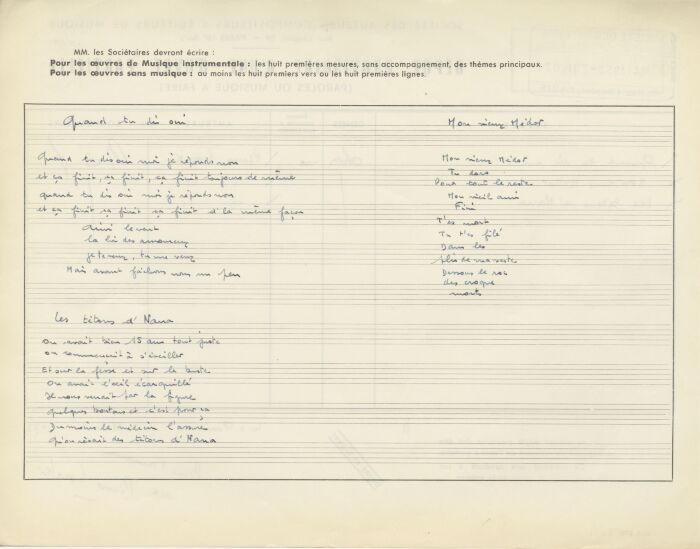 MM. les Sociétaires devront écrire :
Pour les œuvres de Musique Instrumentale : les huit premières mesures, sans accompagnement, des thèmes principaux.
Pour les œuvres sans musique : au moins les huit premiers vers ou les huit premières lignes.
Quand tu dis oui
Quand tu dis oui moi je réponds non
et ça finit, ça finit, ça finit toujours de même
quand tu dis oui moi je réponds non
et ça finit ça finit ça finit d'la même façon
Ainsi le veut
la loi des amoureux
je te veux, tu me veux
Mais avant fâchons nous un peu
Les tétons d'Nana
On avait bien 15 ans tout juste
on commençait à s'éveiller
Et sur la fesse et sur le buste
On avait l'œil écarquillé
Il nous venait sur la figure
quelques boutons et c'est pour ça
Du moins le médecin l'assure
Qu'on rêvait des tétons d'Nana
Mon vieux Médor
Mon vieux Médor
Tu dors
Pour tout le reste
Mon vieil ami
Fini
T'es mort
Tu t'es filé
Dans les
plis de ma veste
Dessous le roc
des croque
morts